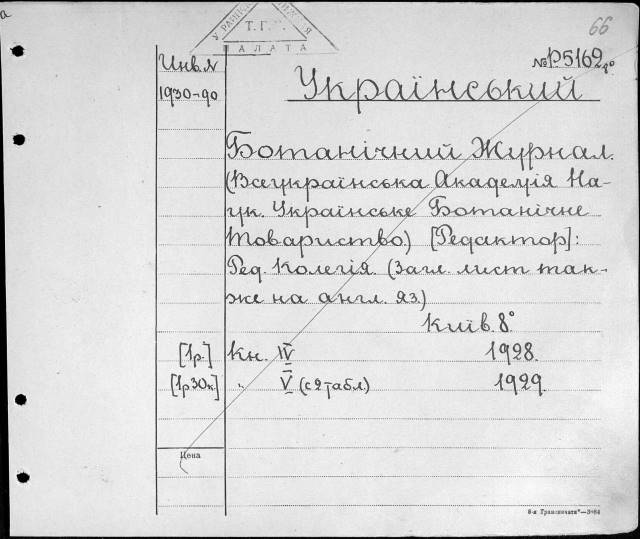 66
Т. Г.
ПАЛАТА
Инв. №
1930-90
№ Р5169 8°
Український
Ботанічний Журнал.
(Всеукраїнська Академія На-
ук. Українське Ботанічне
Товариство.) [Редактор]:
Ред. Колегія. (Загл. лист так-
же на англ. яз.)
Київ. 8°
[1р.] Кн. IV 1928.
[1р30к.] " V (с 2 табл) 1929.
Цена